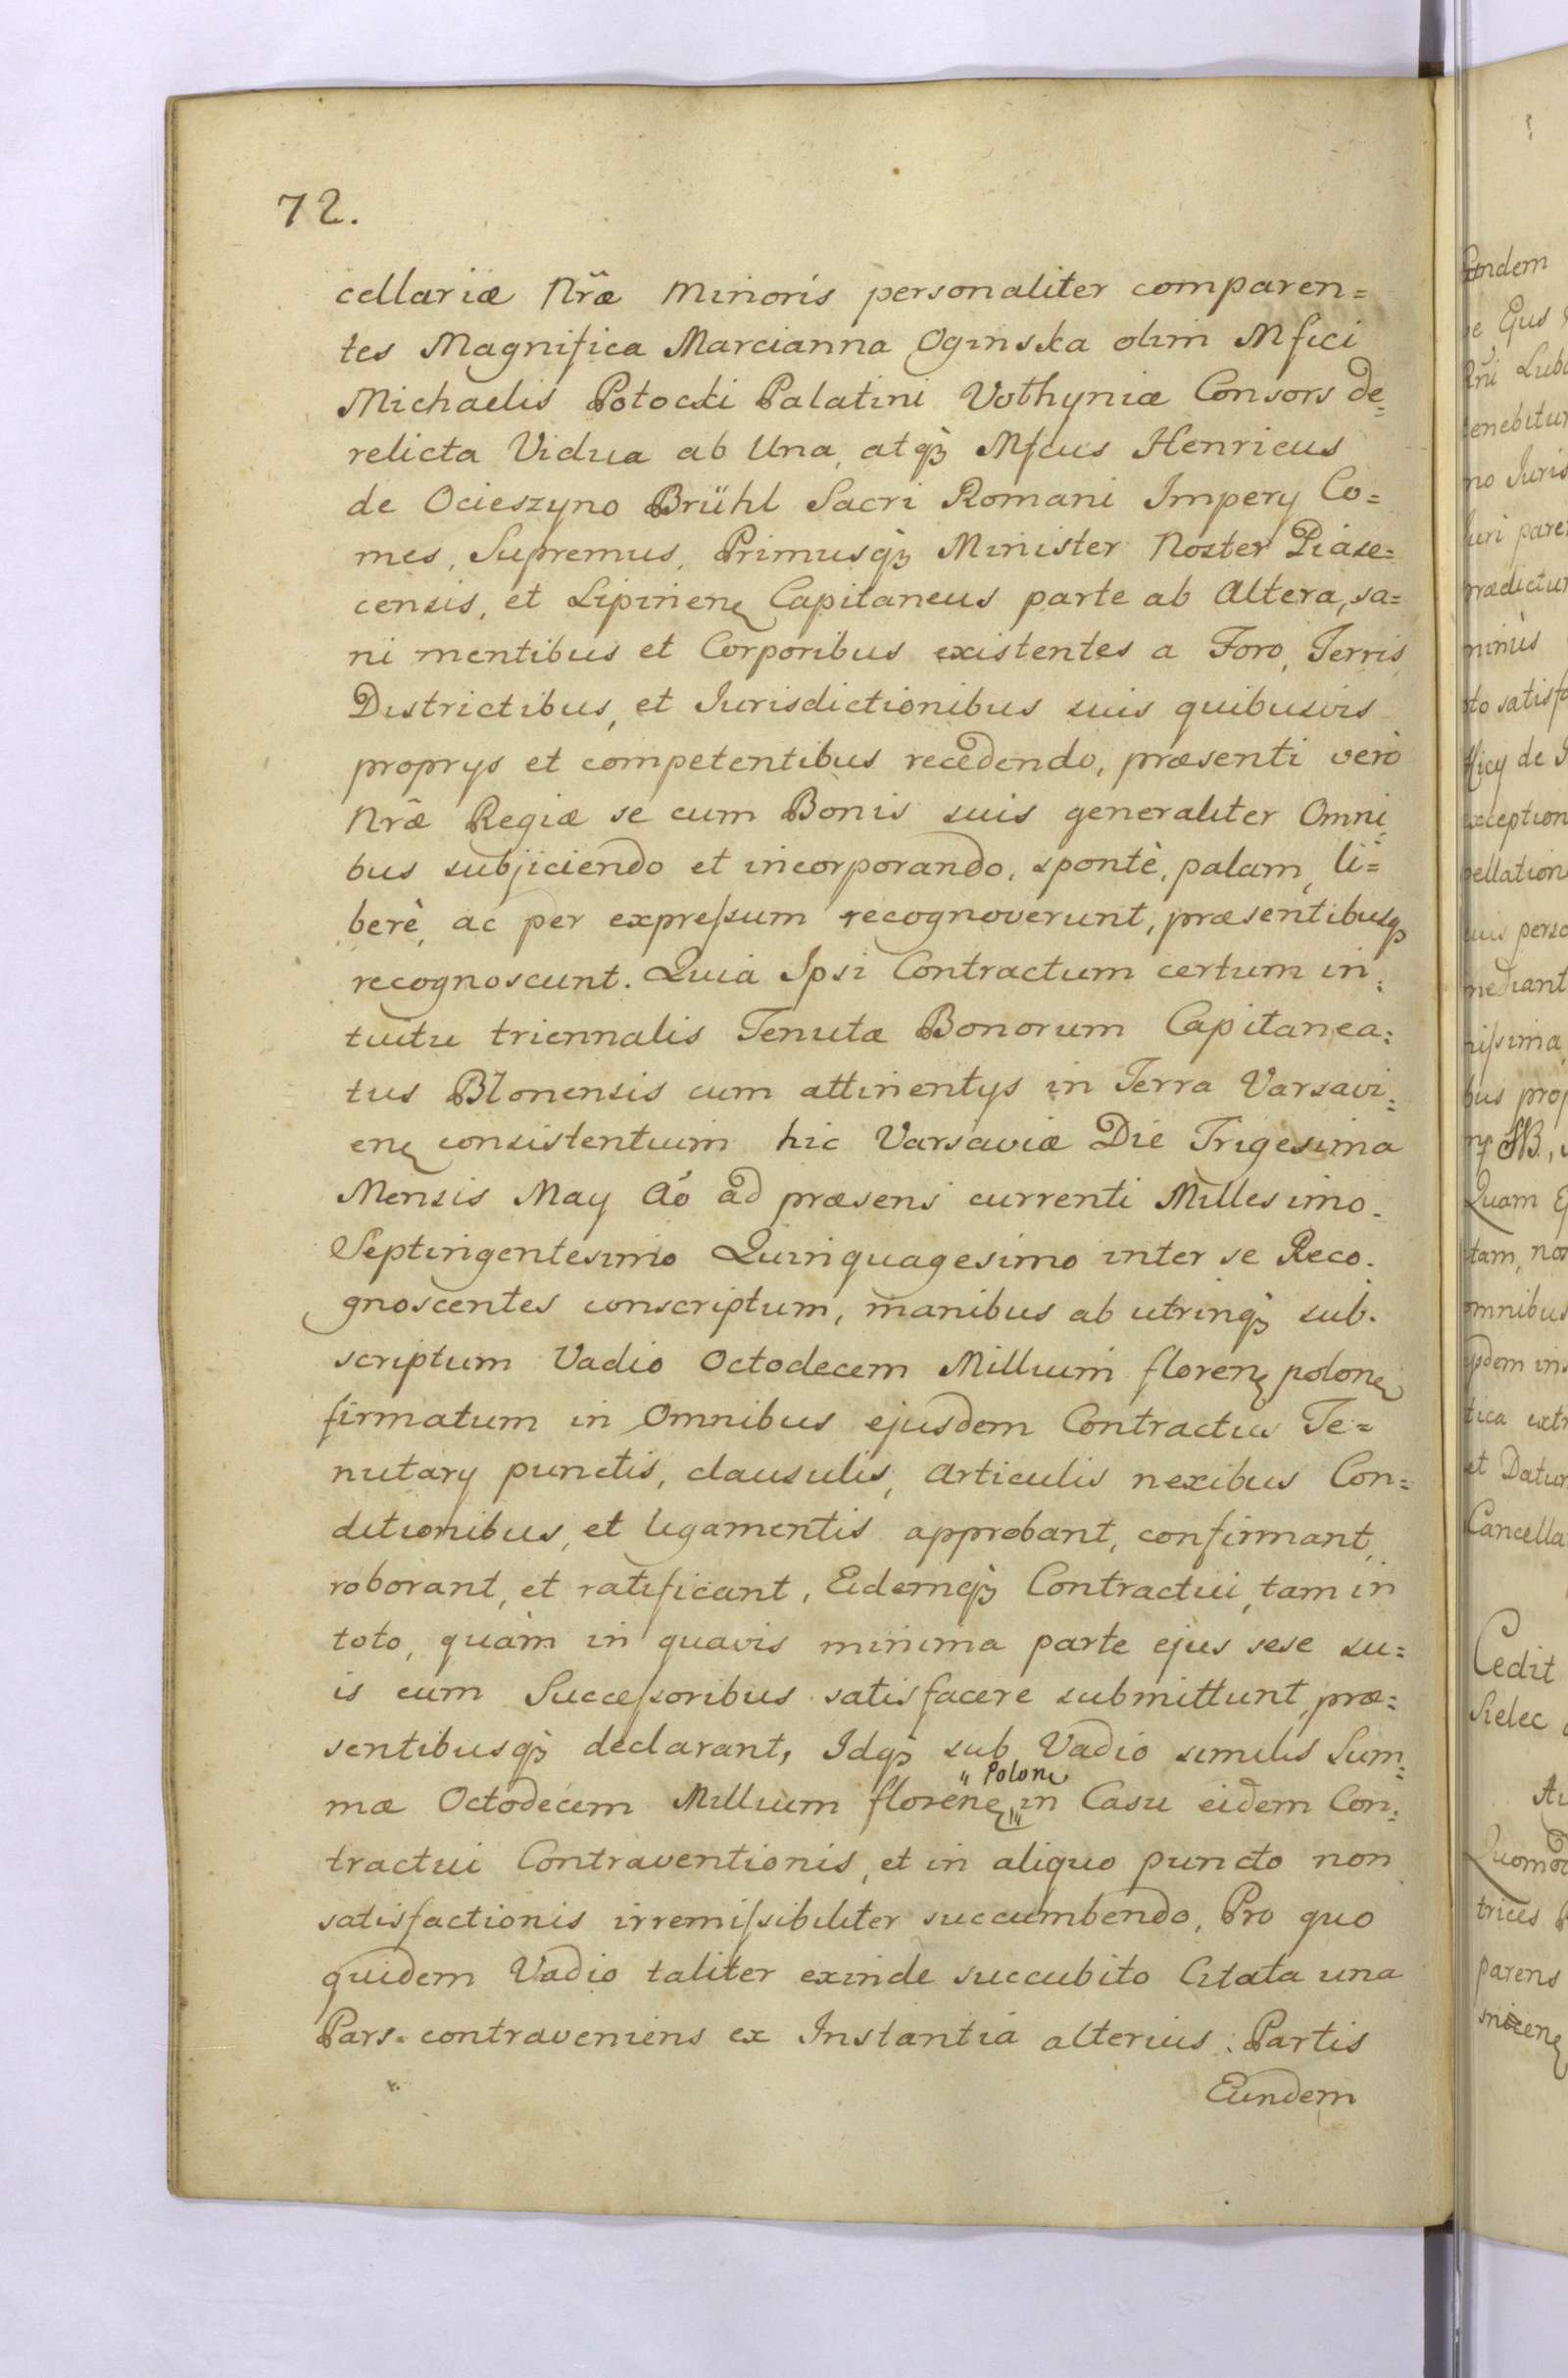 72.
cellariæ Nræ Minoris personaliter comparen=
tes Magnifica Marcianna Oginska olim Mfici
Michaelis Potocki Palatini Volhyniæ Consors de=
relicta Vidua ab Una, atqꝫ Mfcus Henricus
de Ocieszyno Brühl Sacri Romani Impery Co=
mes, Supremus, Primusqꝫ Minister Noster Piase=
censis, et Lipinenꝭ Capitaneus parte ab Altera, sa=
ni mentibus et Corporibus existentes a Foro, Terris
Districtibus, et Jurisdictionibus suis quibusvis
proprys et competentibus recedendo, præsenti verò
Nrã Regiæ se cum Bonis suis generaliter Omni=
bus subjiciendo et incorporando, spontè, palam, li=
berè, ac per expreſsum recognoverunt, præsentibusqꝫ
recognoscunt. Quia Ipsi Contractum certum in=
tuitu triennalis Tenutæ Bonorum Capitanea=
tus Błonensis cum attinentys in Terra Varsavi=
enꝭ consistentium hic Varsaviæ Die Trigesima
Mensis May Aó ad præsens currenti Millesimo.
Septingentesimo Quinquagesimo inter se Reco.
gnoscentes conscriptum, manibus ab utrinqꝫ sub.
scriptum Vadio Octodecem Millium florenꝭ polonꝭ
firmatum in Omnibus ejusdem Contractus Te=
nutary punctis, clausulis, Articulis nexibus Con=
ditionibus, et ligamentis approbant, confirmant,
roborant, et ratificant, Eidemqꝫ Contractui, tam in
toto, quàm in quavis minima parte ejus sese su=
is cum Succeſsoribus satisfacere submittunt, præ=
sentibusqꝫ declarant, Idqꝫ sub Vadio similis Sum=
" Polonꝭ
mæ Octodecem Millium florenꝭ " in Casu eidem Con=
tractui Contraventionis, et in aliquo puncto non
satisfactionis irremiſsibiliter succumbendo, Pro quo
quidem Vadio taliter exinde succubito Citata una
Pars contraveniens ex Instantia alterius Partis
Eundem